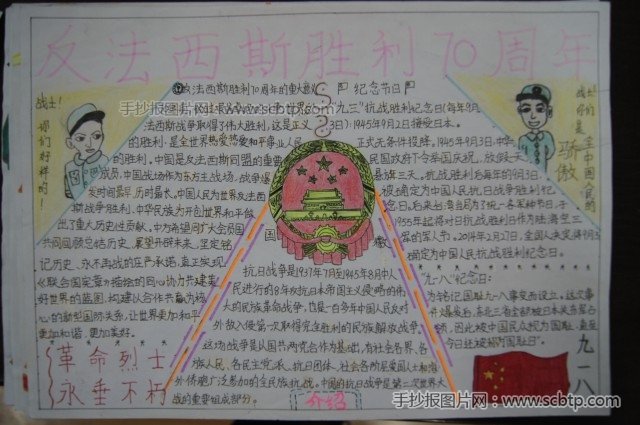 反法西斯胜利70周年
手抄报图片网 - www.scbtp.com
反法西斯胜利70周年的重大意义
法西斯战争取得了伟大胜利，这是正义
的胜利，是全世界热爱
和平事业人民
的胜利。中国是反法西斯同盟的重要
成员，中国战场作为东方主战场，战争爆
发时间最早，历时最长。中国人民为世界反法西
斯战争胜利、中华民族为开创世界和平做
出了重大历史性贡献。
共同回顾总结历史、展望开辟未来，坚定铭
记历史、永不再战的庄严承诺，真正实现
《联合国宪章》描绘的同心协力共建美
好世界的蓝图，构建以合作共赢为核
心的新型国际关系，让世界更加和平
更加和谐、更加美好。
纪念节日
“九三”抗战胜利纪念日（每年9月
3日）：1945年9月2日接受日本
正式无条件投降，1945年9月3日，中华
民国政府下令举国庆祝，放假1天
悬旗三天，抗战胜利后每年的9月3日，
被确定为中国人民抗日战争胜利纪
念日。
1955年起将对日抗战胜利日作为陆海空三
军的军人节。2014年2月27日，全国人大定每年9月3
日确定为中国人民抗日战争胜利纪念日。
“九一八”纪念日：
为铭记国耻九一八事变而设立。这次事
件爆发后，东北三省全部被日本关东军占
领，因此被中国民众视为国耻，直至
今日还被称为国耻日”。
抗日战争是1937年7月到1945年8月中人
民进行的8年反抗日本帝国主义侵略的伟
大的民族革命战争，也是一百多年中国人民反对
外敌入侵第一次取得完全胜利的民族解放战争。
这场战争是以国共两党合作为基础，有社会各界、各
族人民、各民主党派、抗日团体、社会各阶层爱国人士和海
外侨胞广泛参加的全民族抗战。中国的抗日战争是第二次世界大
战的重要组成部分。
介绍
战士！
你们好样的！
战士们
好是
骄傲
全中国人民的
革命烈士
永垂不朽
九一八
手抄报图片网 - www.scbtp.com